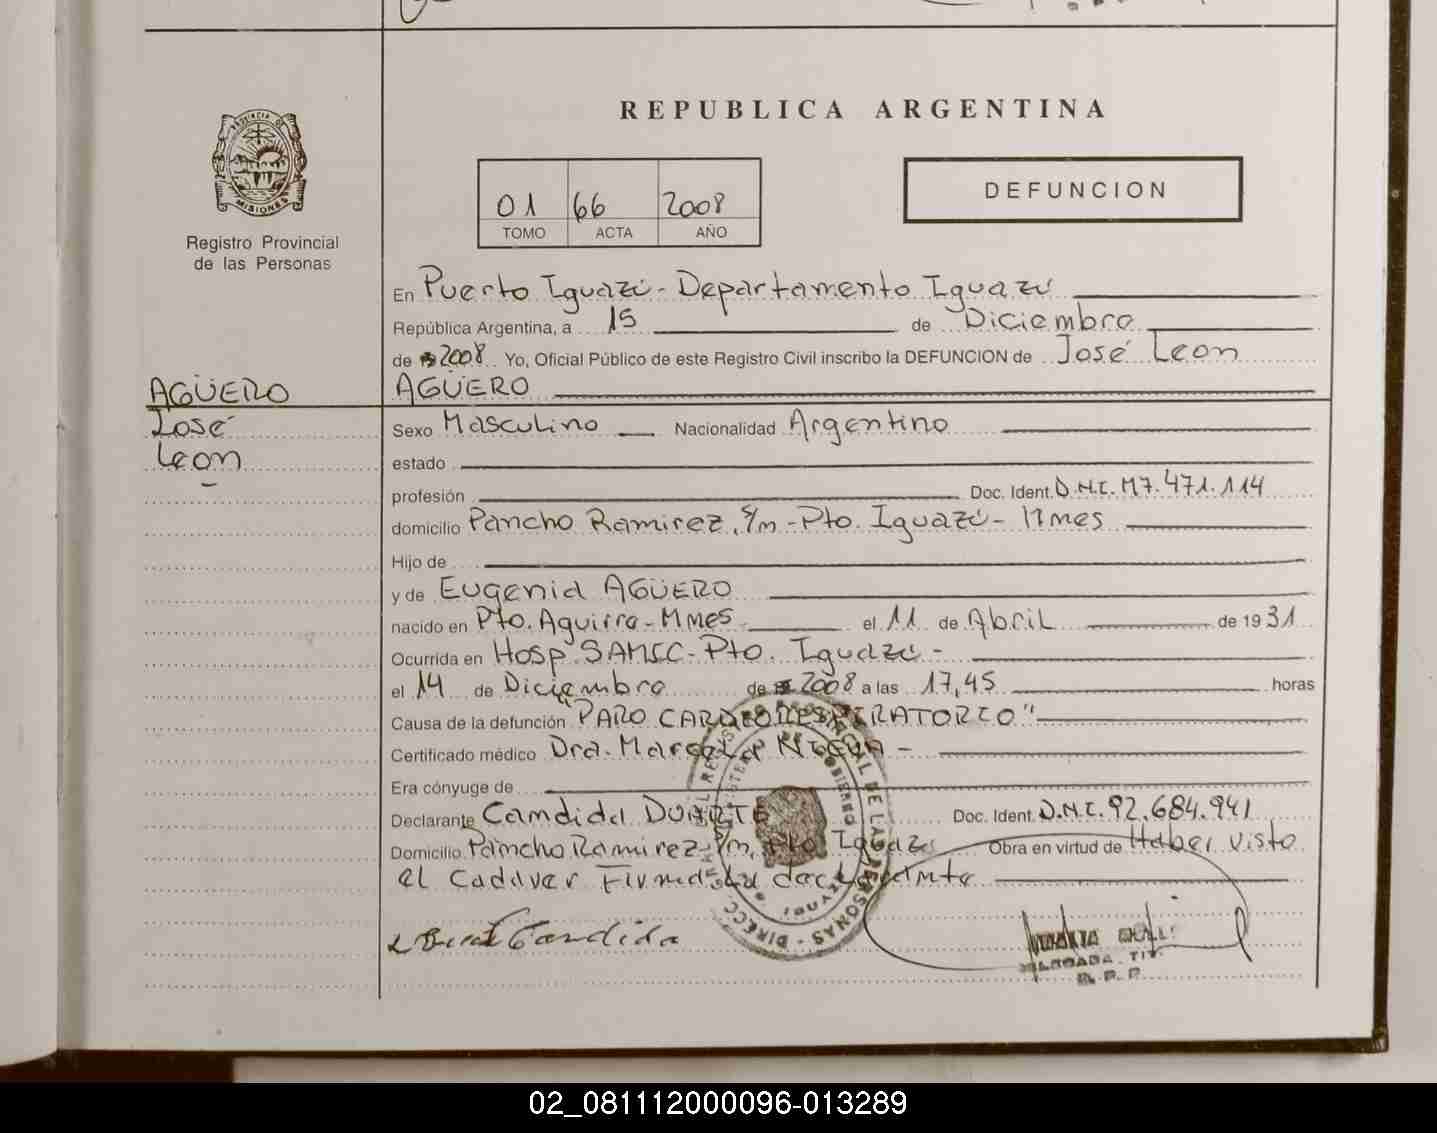 REPUBLICA ARGENTINA
PROVINCIA DE
MISIONES
Registro Provincial
de las Personas
01 66 2008
TOMO ACTA AÑO
DEFUNCION
En Puerto Iguazú - Departamento Iguazú
República Argentina, a 15 de Diciembre
de 2008 Yo, Oficial Público de este Registro Civil inscribo la DEFUNCION de José Leon
AGÜERO
AGÜERO
José
Leon
Sexo Masculino Nacionalidad Argentino
estado
profesión Doc. Ident. D.N.I. M7.471.114
domicilio Pancho Ramirez, s/n - Pto. Iguazú - Mnes
Hijo de
y de Eugenia AGÜERO
nacido en Pto. Aguirre - Mnes el 11 de Abril de 1931
Ocurrida en Hosp SAMIC - Pto. Iguazú -
el 14 de Diciembre de 2008 a las 17,45 horas
Causa de la defunción "PARO CARDIORESPIRATORIO"
Certificado médico Dra. Marcela -
Era cónyuge de
Declarante Candida DUARTE Doc. Ident. D.N.I. 92.684.941
Domicilio Pancho Ramirez s/n, Pto. Iguazú Obra en virtud de Haber visto
el Cadaver Firma la declarante
Candida
R.P.P.
02_081112000096-013289